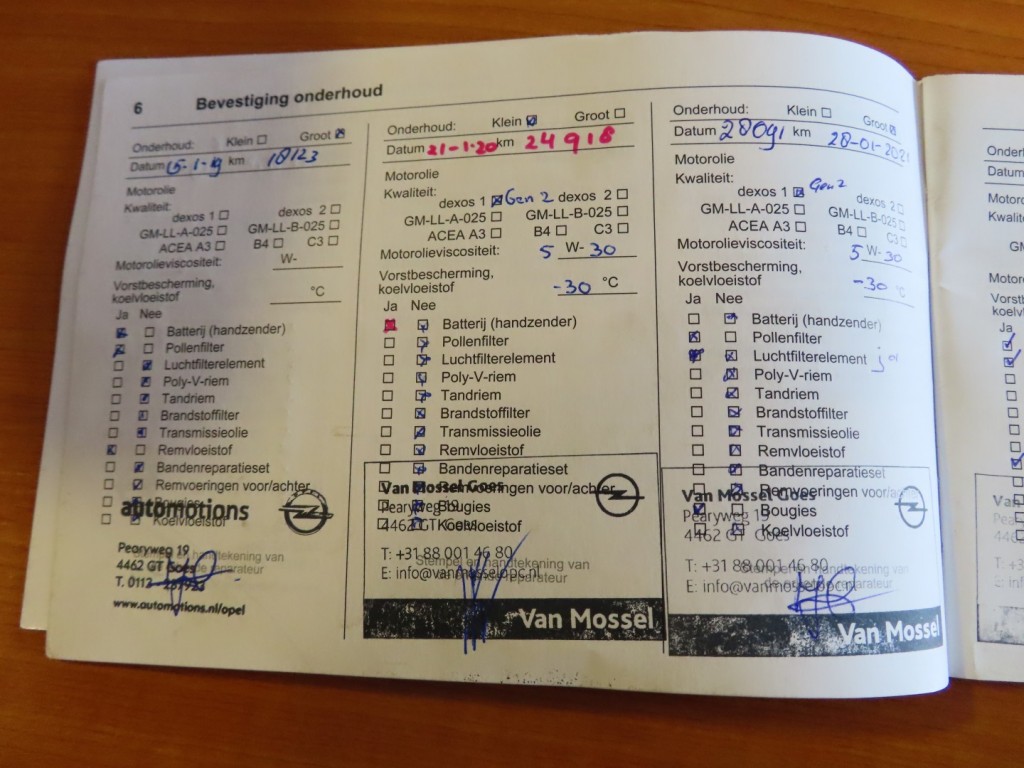 6 Bevestiging onderhoud
Onderhoud: Klein Groot
Datum 15-1-19 km 18123
Motorolie
Kwaliteit:
dexos 1 dexos 2
GM-LL-A-025 GM-LL-B-025
ACEA A3 B4 C3
Motorolieviscositeit: W-
Vorstbescherming,
koelvloeistof °C
Ja Nee
Batterij (handzender)
Pollenfilter
Luchtfilterelement
Poly-V-riem
Tandriem
Brandstoffilter
Transmissieolie
Remvloeistof
Bandenreparatieset
Remvoeringen voor/achter
Bougies
Koelvloeistof
automotions
Pearyweg 19
4462 GT Goes
T. 0113
Stempel en handtekening van
de reparateur
www.automotions.nl/opel
Onderhoud: Klein Groot
Datum 21-1-20 km 24918
Motorolie
Kwaliteit:
dexos 1 Gen 2 dexos 2
GM-LL-A-025 GM-LL-B-025
ACEA A3 B4 C3
Motorolieviscositeit: 5 W- 30
Vorstbescherming,
koelvloeistof -30 °C
Ja Nee
Batterij (handzender)
Pollenfilter
Luchtfilterelement
Poly-V-riem
Tandriem
Brandstoffilter
Transmissieolie
Remvloeistof
Bandenreparatieset
Remvoeringen voor/achter
Bougies
Koelvloeistof
Van Mossel Goes
Pearyweg 19
4462 GT Goes
T: +31 88 001 46 80
Stempel en handtekening van
de reparateur
E: info@vanmosselopc.nl
Van Mossel
Onderhoud: Klein Groot
Datum 28091 km 28-01-2021
Motorolie
Kwaliteit:
dexos 1 Gen 2 dexos 2
GM-LL-A-025 GM-LL-B-025
ACEA A3 B4 C3
Motorolieviscositeit: 5 W- 30
Vorstbescherming,
koelvloeistof -30 °C
Ja Nee
Batterij (handzender)
Pollenfilter
Luchtfilterelement ja
Poly-V-riem
Tandriem
Brandstoffilter
Transmissieolie
Remvloeistof
Bandenreparatieset
Remvoeringen voor/achter
Bougies
Koelvloeistof
Van Mossel Goes
Pearyweg 19
4462 GT Goes
T: +31 88 001 46 80
Stempel en handtekening van
de reparateur
E: info@vanmosselopc.nl
Van Mossel